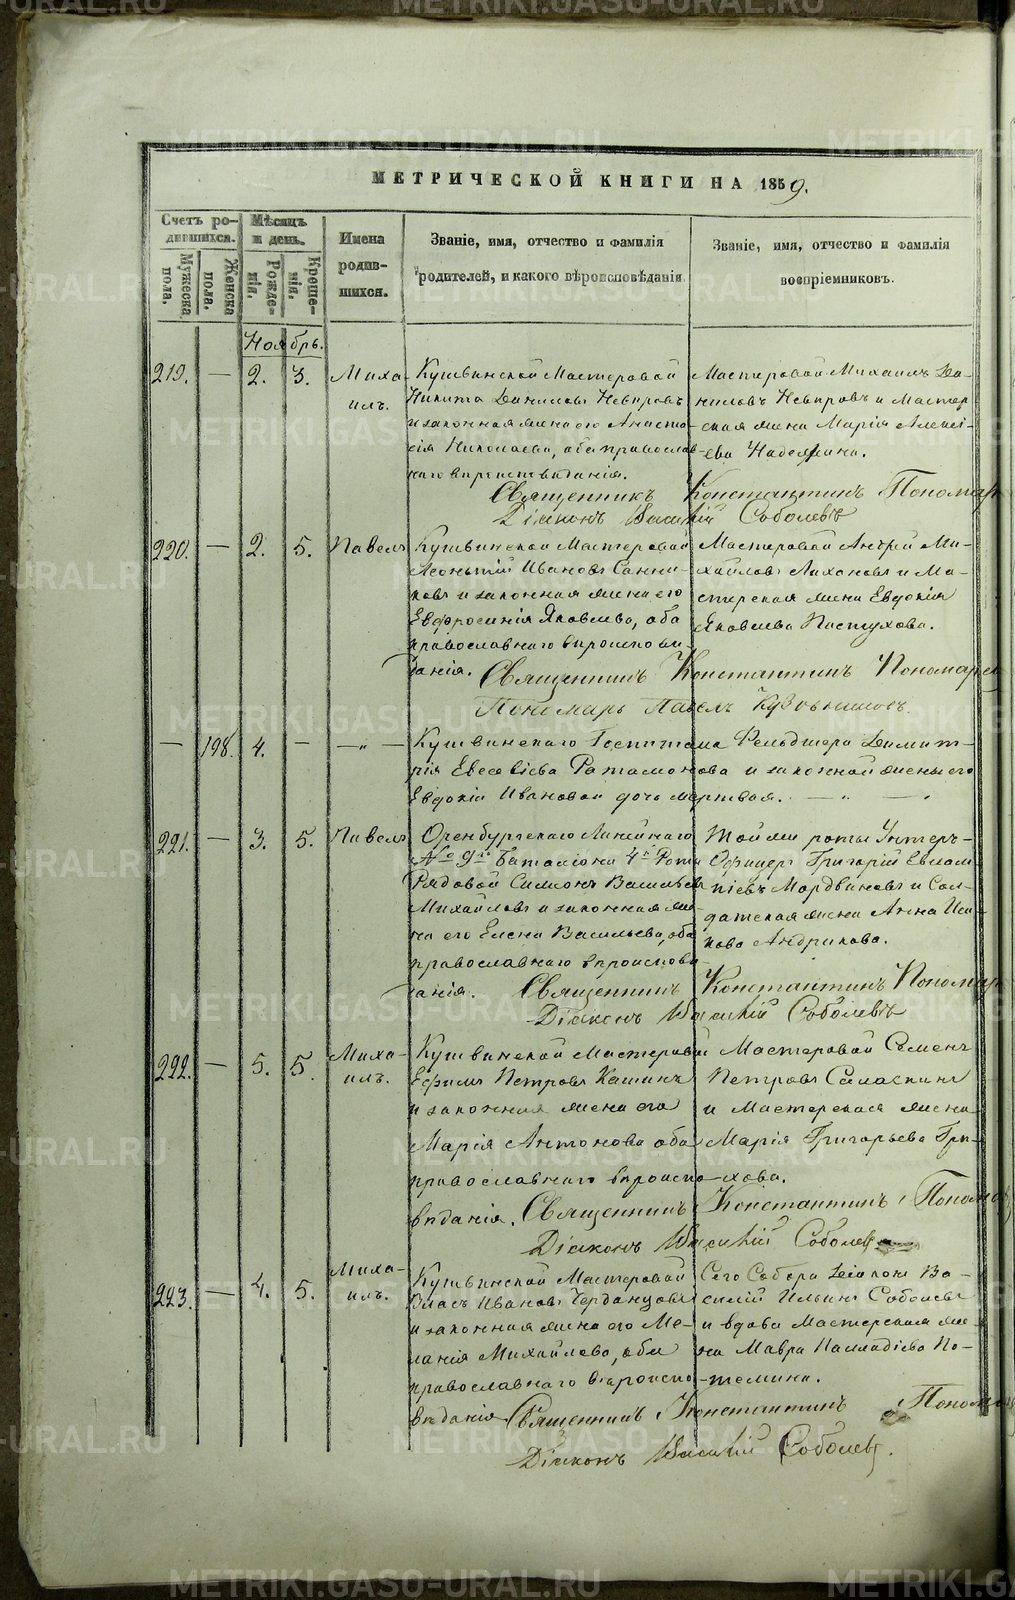 МЕТРИЧЕСКОЙ КНИГИ НА 1859.
Счетъ ро-
дившихся.
Мужеска
пола.
Женска
пола.
Мѣсяцъ
и день.
Рожде-
нія.
Креще-
нія.
Имена
родив-
шихся.
Званіе, имя, отчество и фамилія
родителей, и какого вѣроисповѣданія.
Званіе, имя, отчество и фамилія
воспріемниковъ.
Ноябрь.
219. — 2. 3.
Миха-
илъ.
Кушвинской Мастеровой
Никита Даниловъ
и законная жена его Анаста-
сія Николаева, оба православ-
наго вѣроисповѣданія.
Мастеровой Михаилъ Да-
ниловъ и Мастер-
ская жена Марія Алексѣ-
ева
Священникъ Константинъ Пономар
Діаконъ Василій Соболевъ
220. — 2. 5.
Павелъ
Кушвинской Мастеровой
Леонтій Ивановъ Санни-
ковъ и законная жена его
Евфросинія Яковлева, оба
православнаго вѣроисповѣ-
данія.
Мастеровой Андрей Ми-
хайловъ Лихановъ и Ма-
стерская жена Евдокія
Яковлева Пастухова.
Священникъ Константинъ Пономарев
Пономарь Павелъ
— 198. 4. — —"—
Кушвинскаго Госпиталя Фельдшера Димит-
рія Евсевіева Ратамонова и законной жены его
Евдокіи Ивановой дочь мертвая. — " —
221. — 3. 5.
Павелъ
Оренбургскаго Линѣйнаго
№ 9го Баталіона 4й Роты
Рядовой Симеонъ Васильевъ
Михайловъ и законная же-
на его Елена Васильева, оба
православнаго вѣроисповѣ-
данія.
Той же роты Унтеръ-
Офицеръ Григорій Евлам-
піевъ Мордвиновъ и Сол-
датская жена Анна Иса-
кова Андрикова.
Священникъ Константинъ Пономар
Діаконъ Василій Соболевъ
222. — 5. 5.
Миха-
илъ.
Кушвинской Мастеровой
Ефимъ Петровъ Кашинъ
и законная жена его
Марія Антонова оба
православнаго вѣроиспо-
вѣданія.
Мастеровой Семенъ
Петровъ Саласкинъ
и Мастерская жена
Марія Григорьева Гри-
хова.
Священникъ Константинъ Пономар
Діаконъ Василій Соболев
223. — 4. 5.
Миха-
илъ.
Кушвинской Мастеровой
Власъ Ивановъ Черданцовъ
и законная жена его Ме-
ланія Михайлова, оба
православнаго вѣроиспо-
вѣданія
Сего Собора Діаконъ Ва-
силій Ильинъ Соболевъ
и вдова Мастерская же-
на Мавра Палладіева По-
темина.
Священникъ Константинъ Поном
Діаконъ Василій Соболевъ.
METRIKI.GASO-URAL.RU